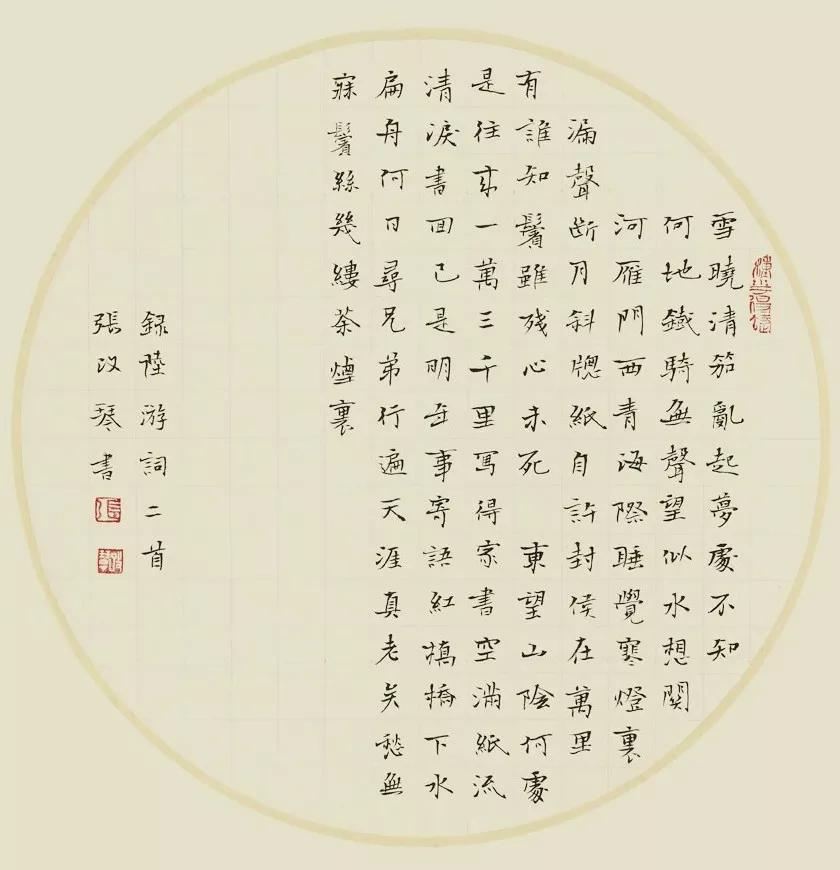 雪曉清笳亂起夢處不知
何地鐵騎無聲望似水想關
河雁門西青海際睡覺寒燈裏
漏聲斷月斜牕紙自許封侯在萬里
有誰知鬢雖殘心未死 東望山陰何處
是往來一萬三千里寫得家書空滿紙流
清淚書囬已是明年事寄語紅橋橋下水
扁舟何日尋兄弟行遍天涯真老矣愁無
寐鬢絲幾縷茶煙裏
録陸游詞二首
張琴書